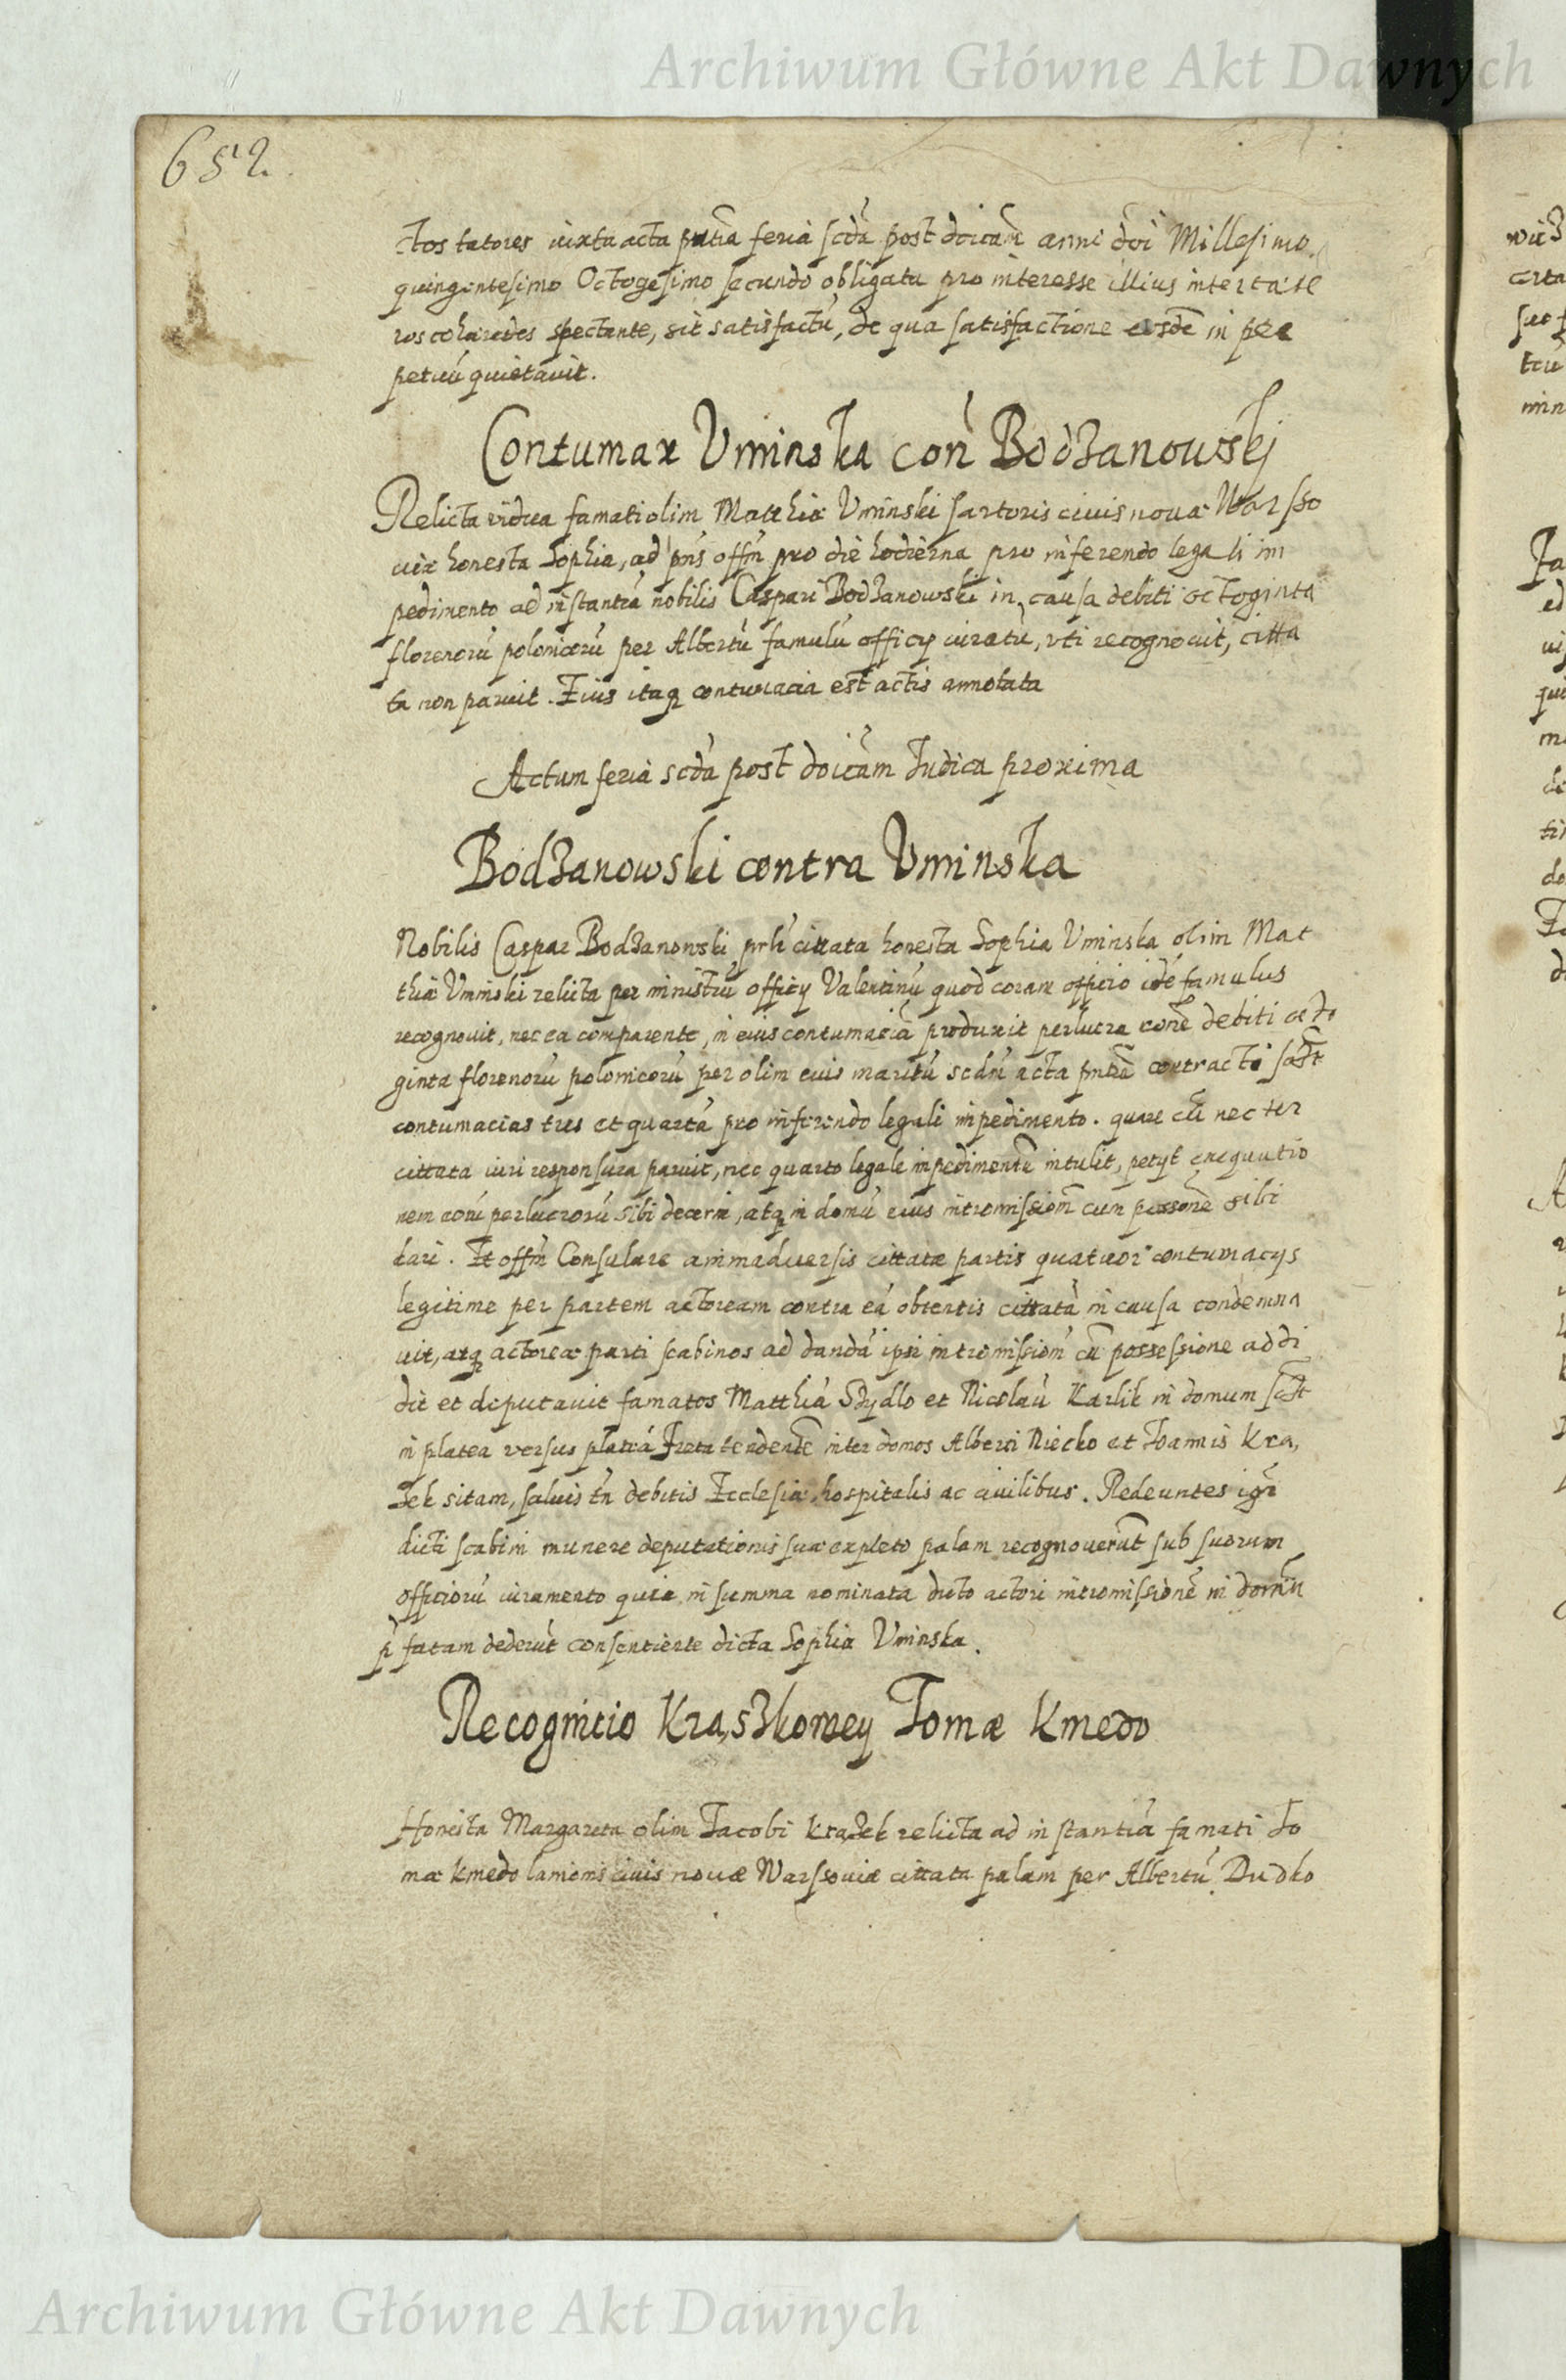 Archiwum Główne Akt Dawnych
652.
ctos tutores iuxta acta pn̄tia feria scd̄a post doicam̄ anni dn̄i Millesimo
quingentesimo Octogesimo secundo obligatu pro interesse illius inter caete
ros cohæredes spectante, sit satisfactū, de qua satisfactione eosdē in per
petuū quietavit.
Contumax Vminska con̄ Bodzanowskj
Relicta vidua famati olim Matthiæ Vminski sartoris civis novæ Warsso
viæ honesta Sophia, ad pn̄s offm̄ pro die hodierna pro inferendo legali im
pedimento ad instantiā nobilis Caspari Bodzanowski in causa debiti octoginta
florenorū polonicorū per Albertū famulū officÿ iuratū, vti recognovit, citta
ta non paruit. Eius itaq contumacia est actis annotata
Actum feria scd̄a post doicām Judica proxima
Bodzanowski contra Vminska
Nobilis Caspar Bodzanowski cittata honesta Sophia Vminska olim Mat
thiæ Vminski relicta per ministrū officÿ Valentinū quod coram officio idē famulus
recognovit, nec ea comparente, in eius contumaciā produxit perlucra rōne debiti octo
ginta florenorū polonicorū per olim eius maritū scdm̄ acta contracti
contumacias tres et quartā pro inferendo legali impedimento. quare cū nec ter
cittata iuri responsura paruit, nec quarto legale inpedimentū intulit, petÿt exequutio
nem perlucrorū sibi decerni, atq in domū eius intromissionē cum sibi
dari. Et offm̄ Consulare animadversis cittatæ partis quatuor contumacÿs
legitime per partem actoream contra eā obtentis cittatā in causa condemna
vit, atq actoreæ parti scabinos ad dandā ipsi intromissionē cū possessione addi
dit et deputavit famatos Matthiā Sdydlo et Nicolaū Karlik in domum
in platea versus plateā Freta tendentē inter domos Alberti Niecko et Joannis Kra,
zek sitam, salvis tn̄ debitis Ecclesiæ, hospitalis ac civilibus. Redeuntes igr̄
dicti scabini munere deputationis suæ expleto palam recognoverūt sub suorum
officiorū iuramento quia in summa nominata dicto actori intromissionē in domū
p̄fatam dederūt consentiente dicta Sophia Vminska.
Recognitio Kra,szkowey Tomæ Kmedo
Honesta Margareta olim Jacobi Krązek relicta ad instantiā famati To
mæ Kmedo lanionis civis novæ Warssoviæ cittata palam per Albertū Dudko
Archiwum Główne Akt Dawnych